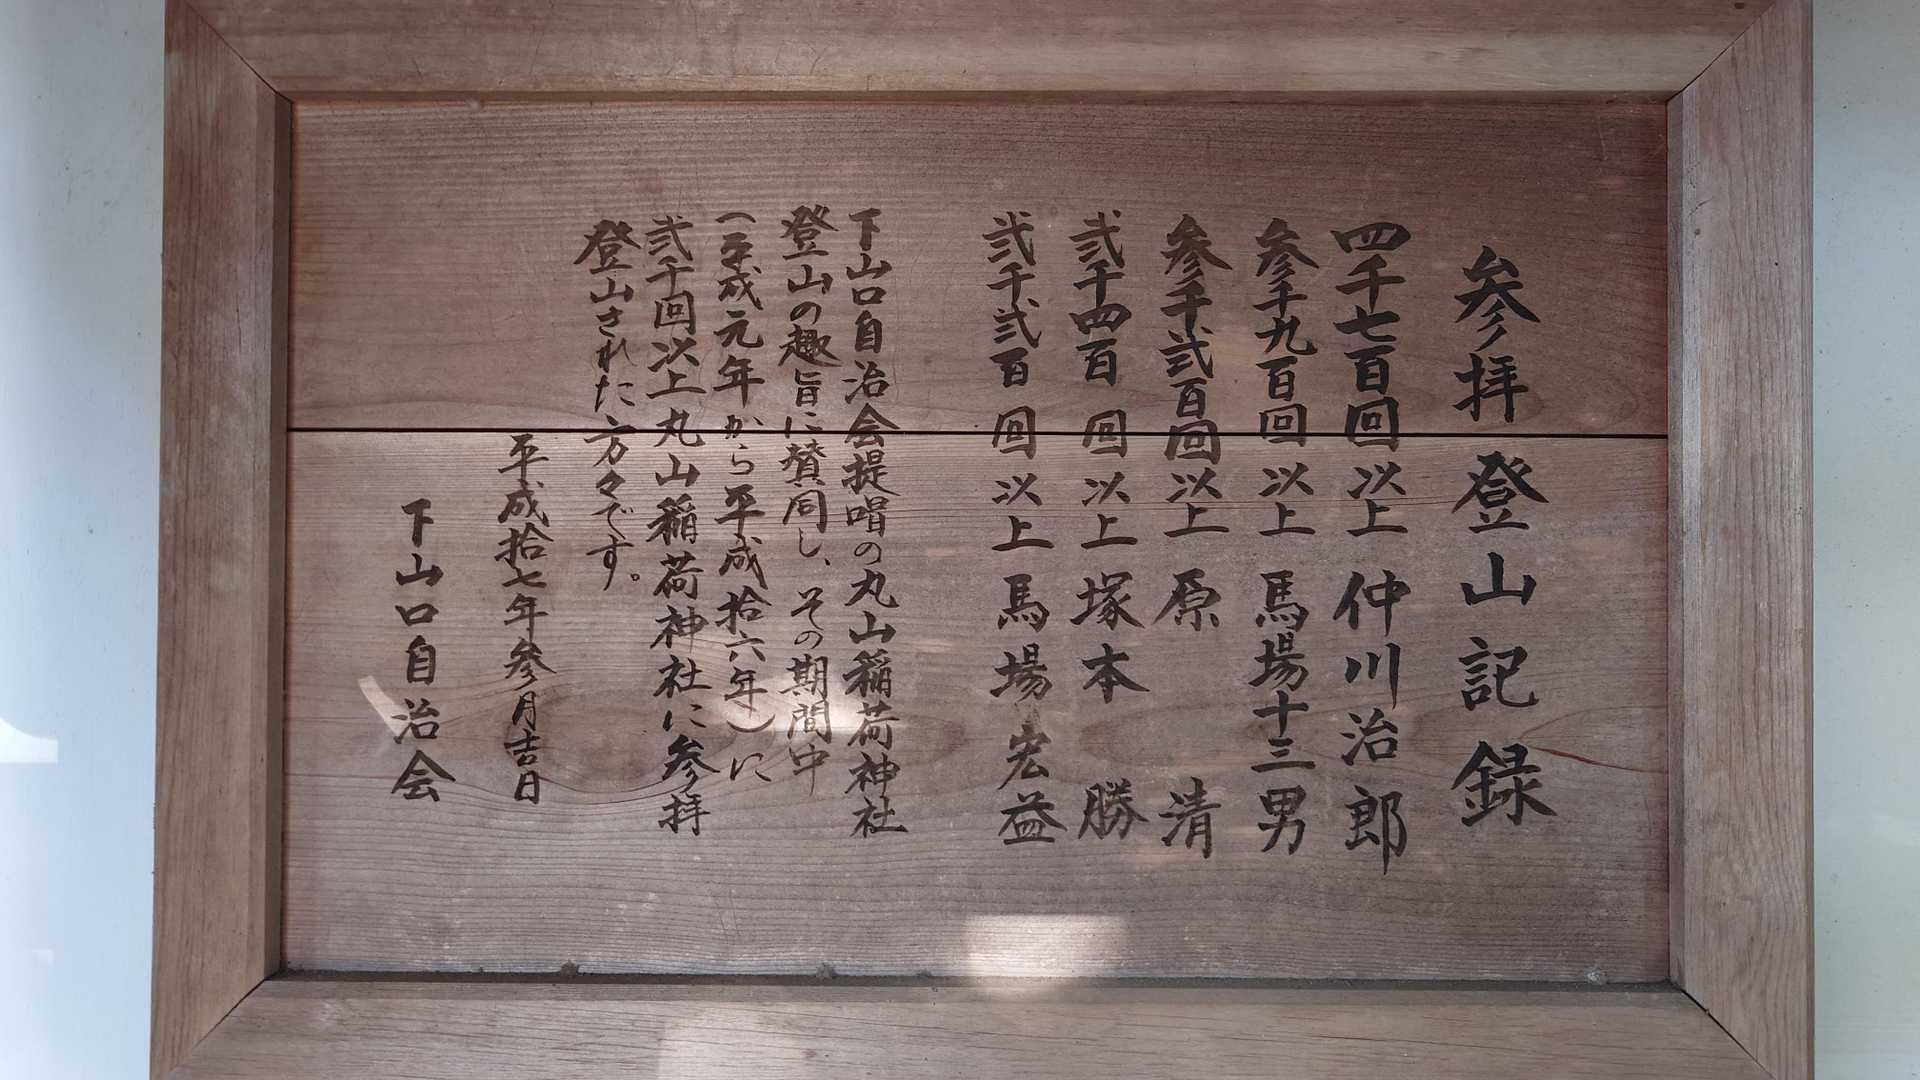 参拝登山記録
四千七百回以上 仲川治郎
参千九百回以上 馬場十三男
参千弐百回以上 原 清
弐千四百回以上 塚本 勝
弐千弐百回以上 馬場宏益
下山口自治会提唱の丸山稲荷神社
登山の趣旨に賛同し、その期間中
(平成元年から平成拾六年)に
弐千回以上丸山稲荷神社に参拝
登山された方々です。
平成拾七年参月吉日
下山口自治会